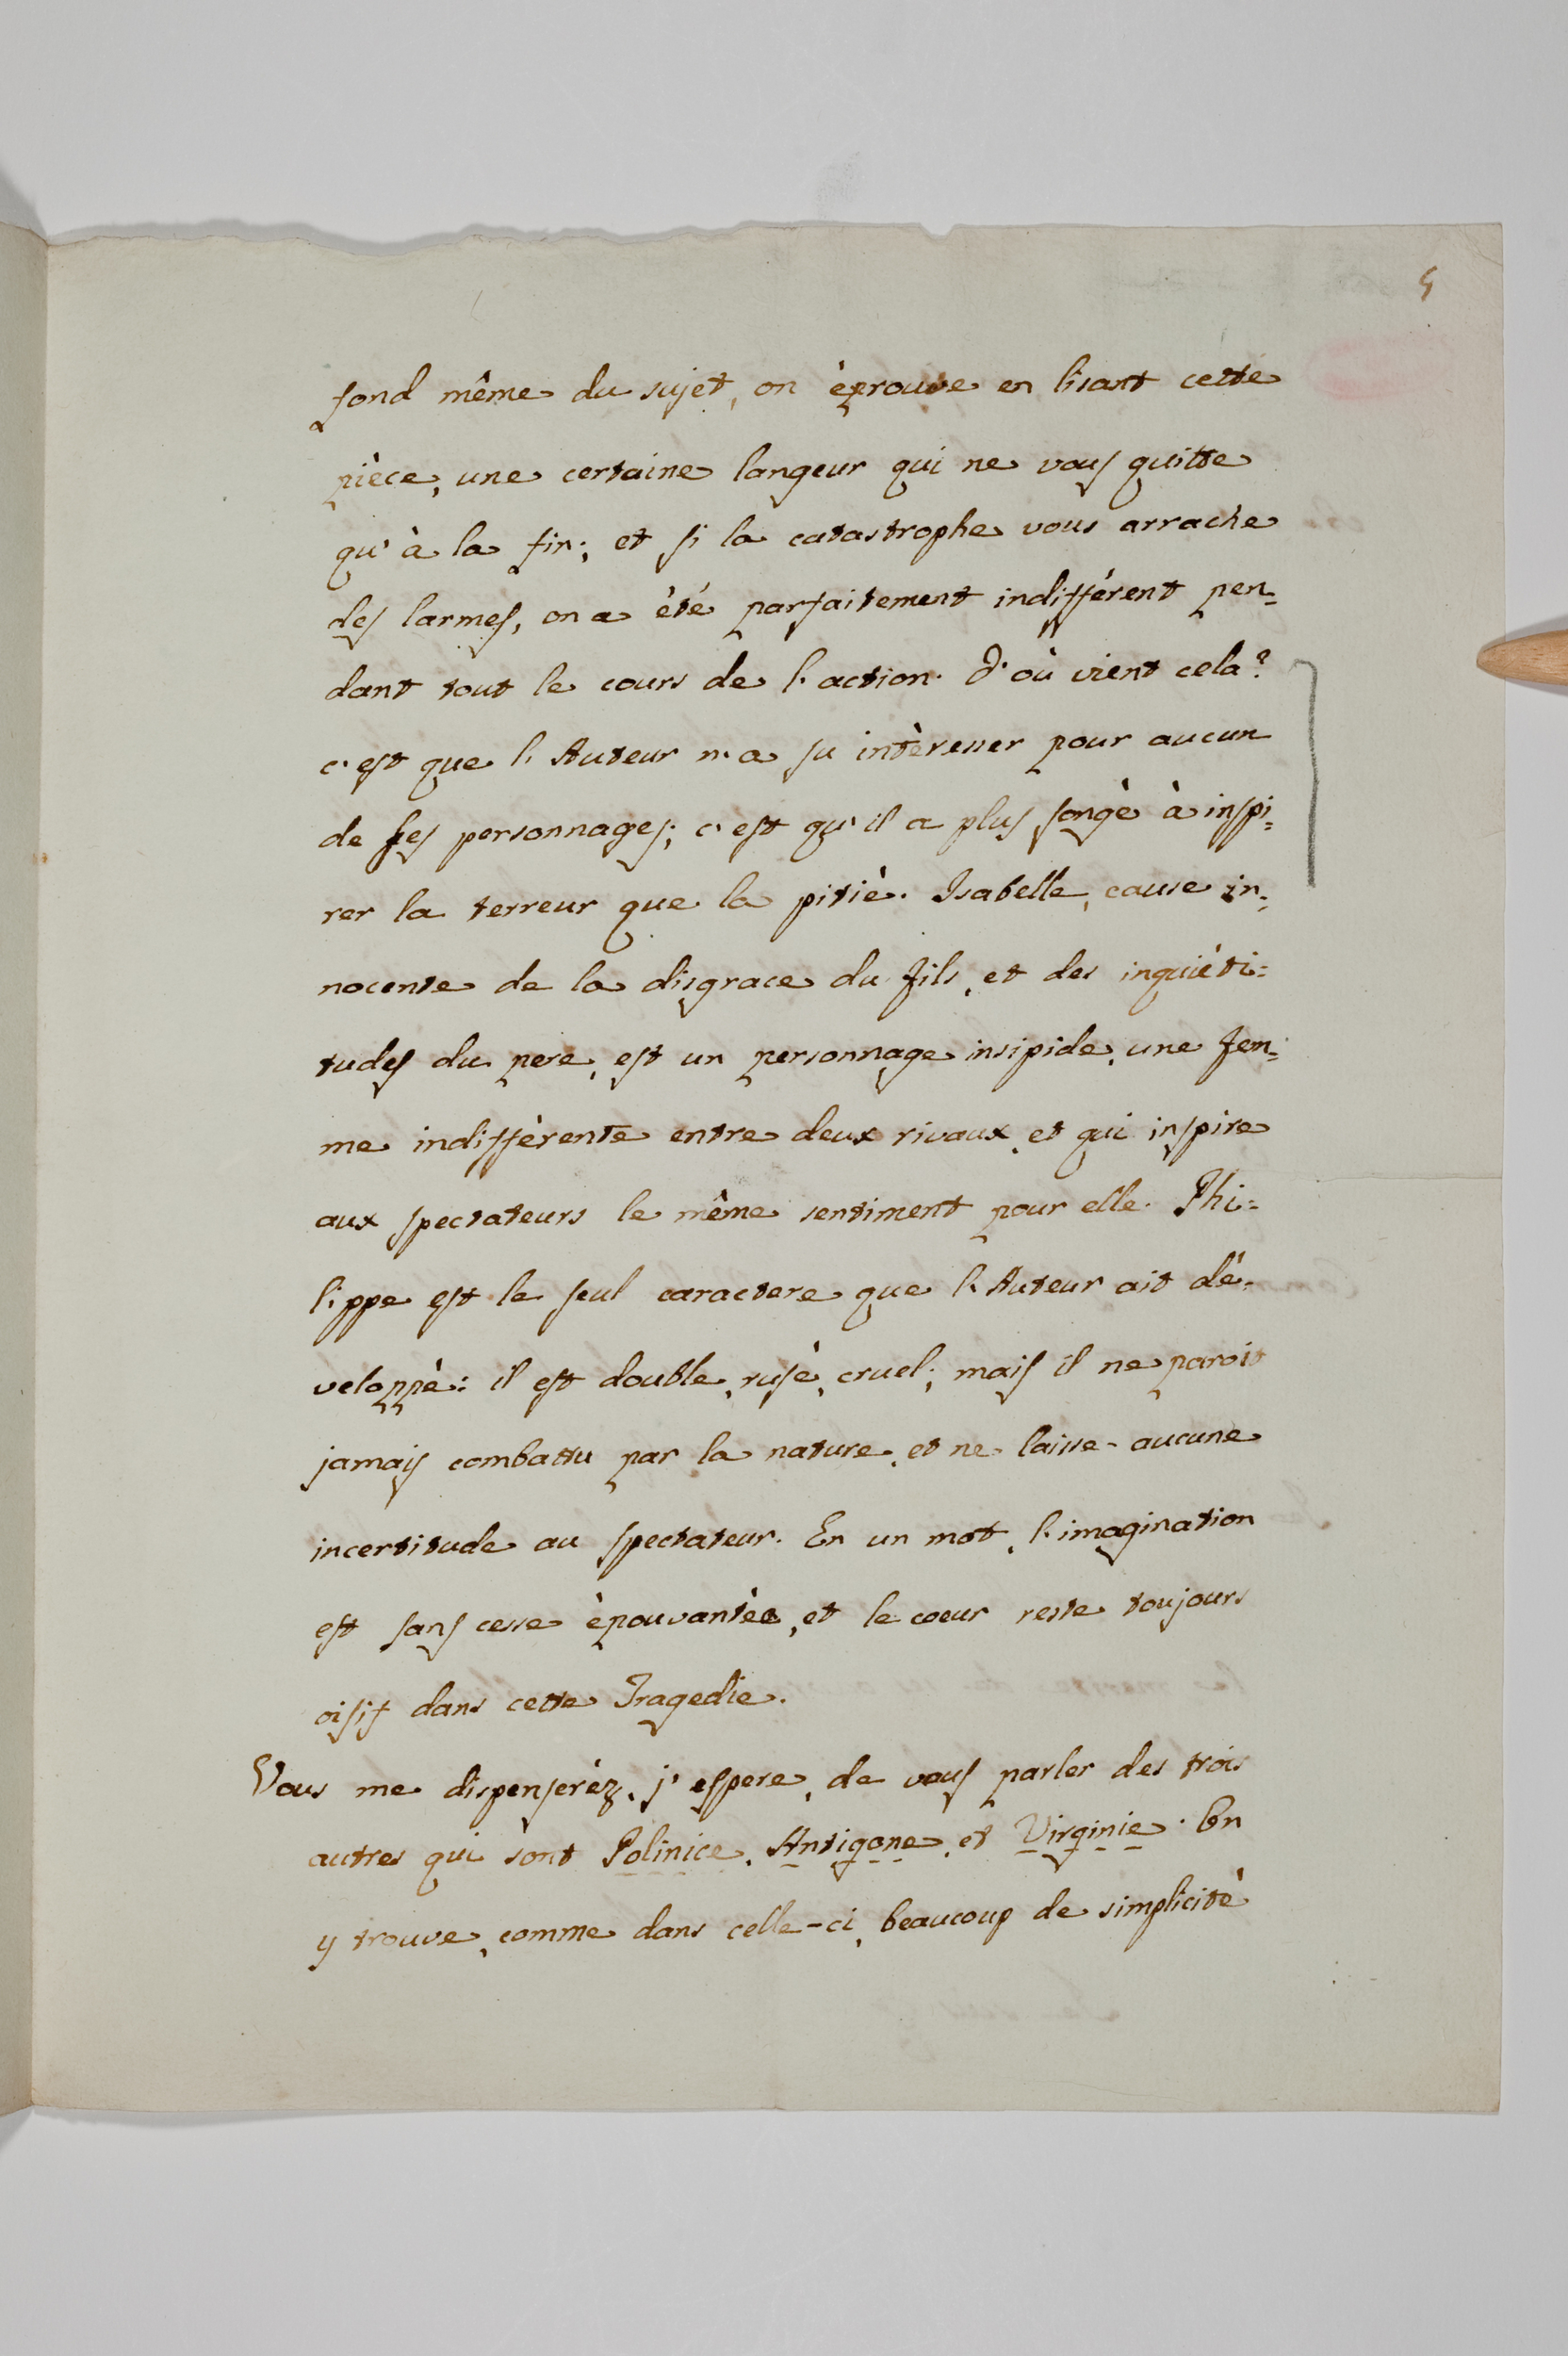 5
fond même du sujet, on èprouve en lisant cette
pièce, une certaine langeur qui ne vous quitte
qu'à la fin; et si la catastrophe vous arrache
des larmes, on a èté parfaitement indiffèrent pen=
dant tout le cours de l'action. D'où vient cela?
c'est que l'Auteur n'a su intèresser pour aucun
de ses personnages; c'est qu'il a plus songè à inspi=
rer la terreur que la pitiè. Isabelle, cause in=
nocente de la disgrace du fils, et des inquièti=
tudes du pere, est un personnage insipide, une fem=
me indiffèrente entre deux rivaux, et qui inspire
aux spectateurs le même sentiment pour elle. Phi=
lippe est le seul caractere que l'Auteur ait dé=
veloppè: il est double, rusè, cruel; mais il ne paroit
jamais combattu par la nature, et ne laisse aucune
incertitude au spectateur. En un mot, l'imagination
est sans cesse èpouvantèe, et le coeur reste toujours
oisif dans cette Tragedie.
Vous me dispenserèz, j'espere, de vous parler des trois
autres qui sont Polinice, Antigone, et Virginie. On
y trouve, comme dans celle-ci, beaucoup de simplicitè